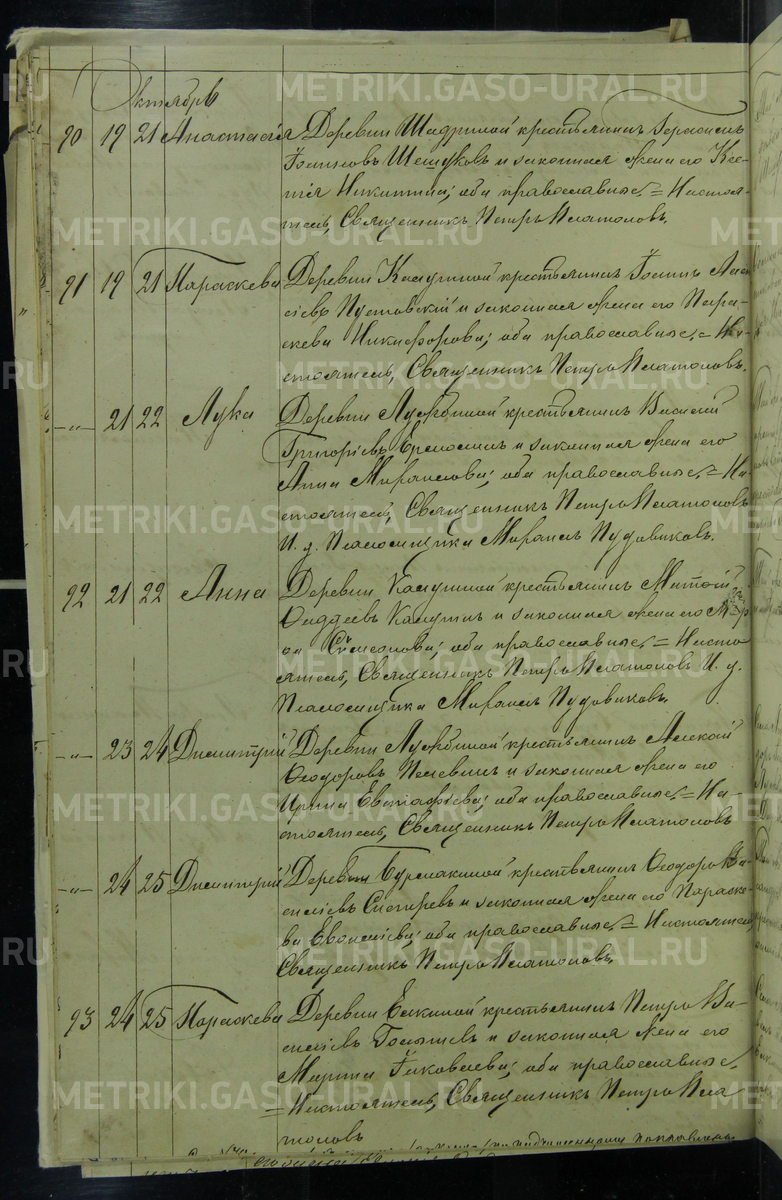 Октябрь
90 19 21 Анастасія Деревни Шадриной крестьянинъ Герасимъ
Іоанновъ Шешуковъ и законная жена его Ксе-
нія Никитина; оба православные. = Настоя-
тель, Священникъ Петръ Платоновъ.
91 19 21 Параскева Деревни Калугиной крестьянинъ Іоаннъ Алек
сіевъ Пустовскій и законная жена его Пара-
скева Никифорова; оба православные. = На-
стоятель, Священникъ Петръ Платоновъ.
-„- 21 22 Лука Деревни Лужбиной крестьянинъ Василій
Григорьевъ Ермолинъ и законная жена его
Анна Миронова; оба православные. = На-
стоятель, Священникъ Петръ Платоновъ
И. д. Псаломщика Миронъ Пудовиковъ.
92 21 22 Анна Деревни Калугиной крестьянинъ Матѳей
Ѳаддеевъ Калугинъ и законная жена его
Сѵмеонова; оба православные. = Насто-
ятель, Священникъ Петръ Платоновъ И. д.
Псаломщика Миронъ Пудовиковъ.
-„- 23 24 Димитрій Деревни Лужбиной крестьянинъ Алексій
Ѳеодоровъ Пелевинъ и законная жена его
Ирина Евстафіева; оба православные. = На-
стоятель, Священникъ Петръ Платоновъ
-„- 24 25 Димитрій Деревни Бурмакиной крестьянинъ Ѳеодоръ Ва-
силіевъ и законная жена его Параске-
ва оба православные. = Настоятель
Священникъ Петръ Платоновъ.
93 24 25 Параскева Деревни Елкиной крестьянинъ Петръ Ва-
силіевъ и законная жена его
Марѳа Іаковлева; оба православные.
= Настоятель, Священникъ Петръ Пла
тоновъ
METRIKI.GASO-URAL.RU